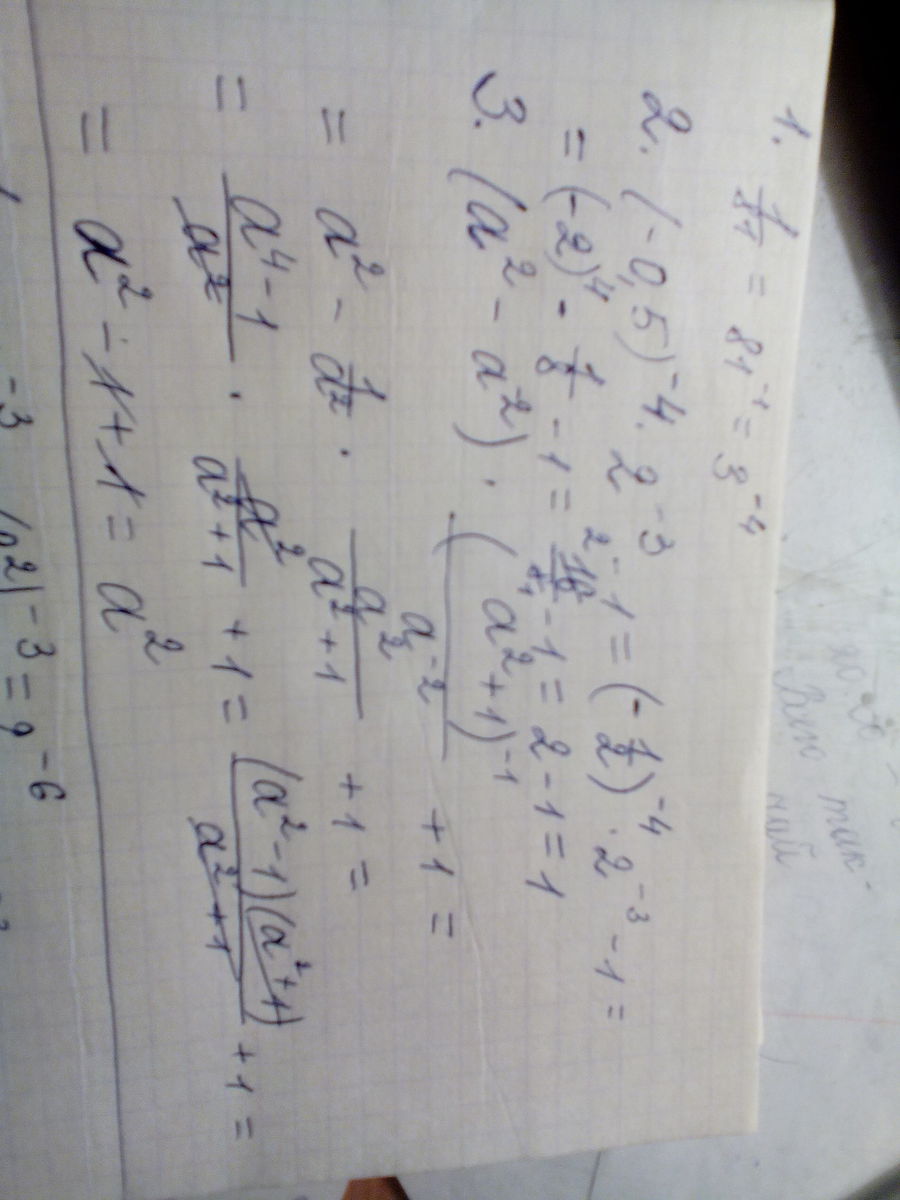 1. 1/81 = 81⁻¹ = 3⁻⁴
2. (-0,5)⁻⁴ · 2⁻³ - 1 = (-1/2)⁻⁴ · 2⁻³ - 1 =
= (-2)⁴ · 1/8 - 1 = 16/8 - 1 = 2 - 1 = 1
3. (a² - a²) · (a⁻²/(a²+1)⁻¹) + 1 =
= a² - 1/a² · a²/(a²+1) + 1 =
= (a⁴-1)/a² · a²/(a²+1) + 1 = (a²-1)(a²+1)/(a²+1) + 1 =
= a² - 1 + 1 = a²
-3 (2)⁻³ = 2⁻⁶